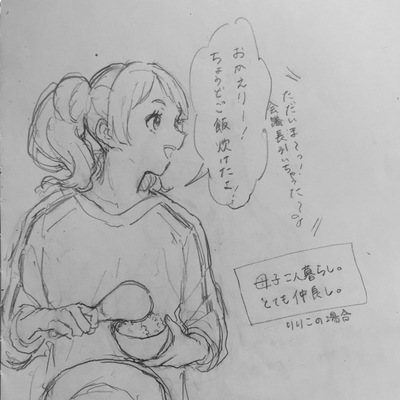 ただいま〜っ
会議長引いちゃった〜。
おかえりー!
ちょうどご飯炊けたよ!
母子二人暮らし。
とても仲良し。
りりこの場合